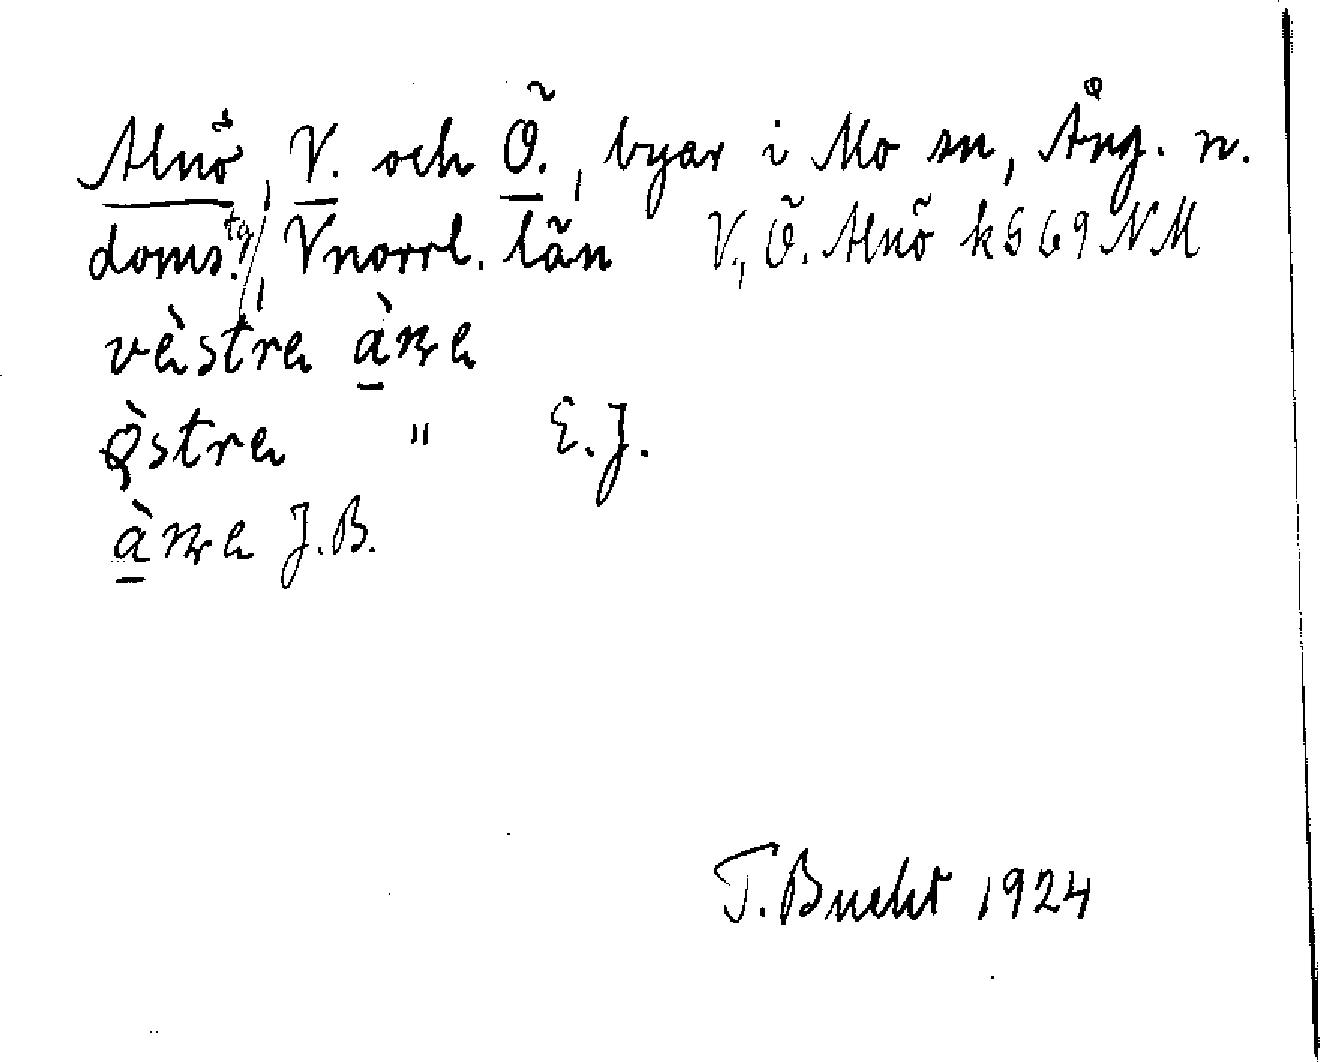 Alnö, V. och Ö., byar i Mo sn, Ång. n.
doms.tg, Vnorrl. län V., Ö. Alnö kb 69 NM
vèstra
östra " E.J.
J.B.
T. Bucht 1924